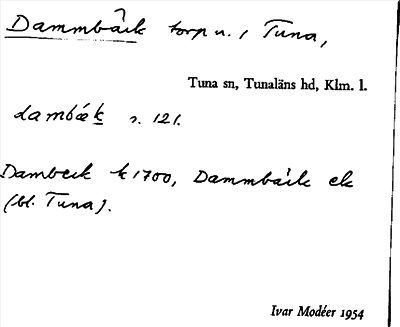 Dammbäck torp u. 1 Tuna,
Tuna sn, Tunaläns hd, Klm. l.
dambæk s. 121.
Dambeck k 1700, Dammbäck ek
(bl. Tuna).
Ivar Modéer 1954